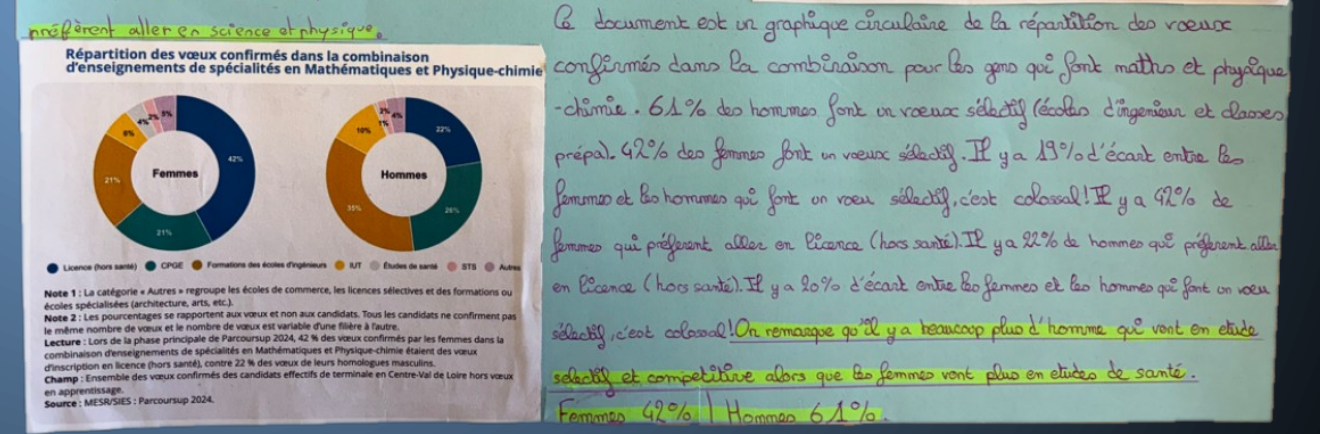 préfèrent aller en science et physique.
Répartition des vœux confirmés dans la combinaison
d'enseignements de spécialités en Mathématiques et Physique-chimie
Femmes
42%
21%
21%
8%
4%
2%
Hommes
22%
26%
35%
10%
1%
4%
Licence (hors santé) CPGE Formations des écoles d'ingénieurs IUT Études de santé STS Autres
Note 1 : La catégorie « Autres » regroupe les écoles de commerce, les licences sélectives et des formations ou
écoles spécialisées (architecture, arts, etc.).
Note 2 : Les pourcentages se rapportent aux vœux et non aux candidats. Tous les candidats ne confirment pas
le même nombre de vœux et le nombre de vœux est variable d'une filière à l'autre.
Lecture : Lors de la phase principale de Parcoursup 2024, 42 % des vœux confirmés par les femmes dans la
combinaison d'enseignements de spécialités en Mathématiques et Physique-chimie étaient des vœux
d'inscription en licence (hors santé), contre 22 % des vœux de leurs homologues masculins.
Champ : Ensemble des vœux confirmés des candidats effectifs de terminale en Centre-Val de Loire hors vœux
en apprentissage.
Source : MESR/SIES : Parcoursup 2024.
Ce document est un graphique circulaire de la répartition des voeux
confirmés dans la combinaison pour les gens qui font maths et physique
-chimie. 61% des hommes font un voeux sélectif (écoles d'ingenieur et classes
prépa). 42% des femmes font un voeux sélectif. Il y a 19% d'écart entre les
femmes et les hommes qui font un voeu sélectif, c'est colossal! Il y a 42% de
femmes qui préferent aller en licence (hors santé). Il y a 22% de hommes qui préferent aller
en licence (hors santé). Il y a 20% d'écart entre les femmes et les hommes qui font un voeu
sélectif, c'est colossal! On remarque qu'il y a beaucoup plus d'homme qui vont en etude
selectif et competitive alors que les femmes vont plus en etudes de santé.
Femmes 42% | Hommes 61%.